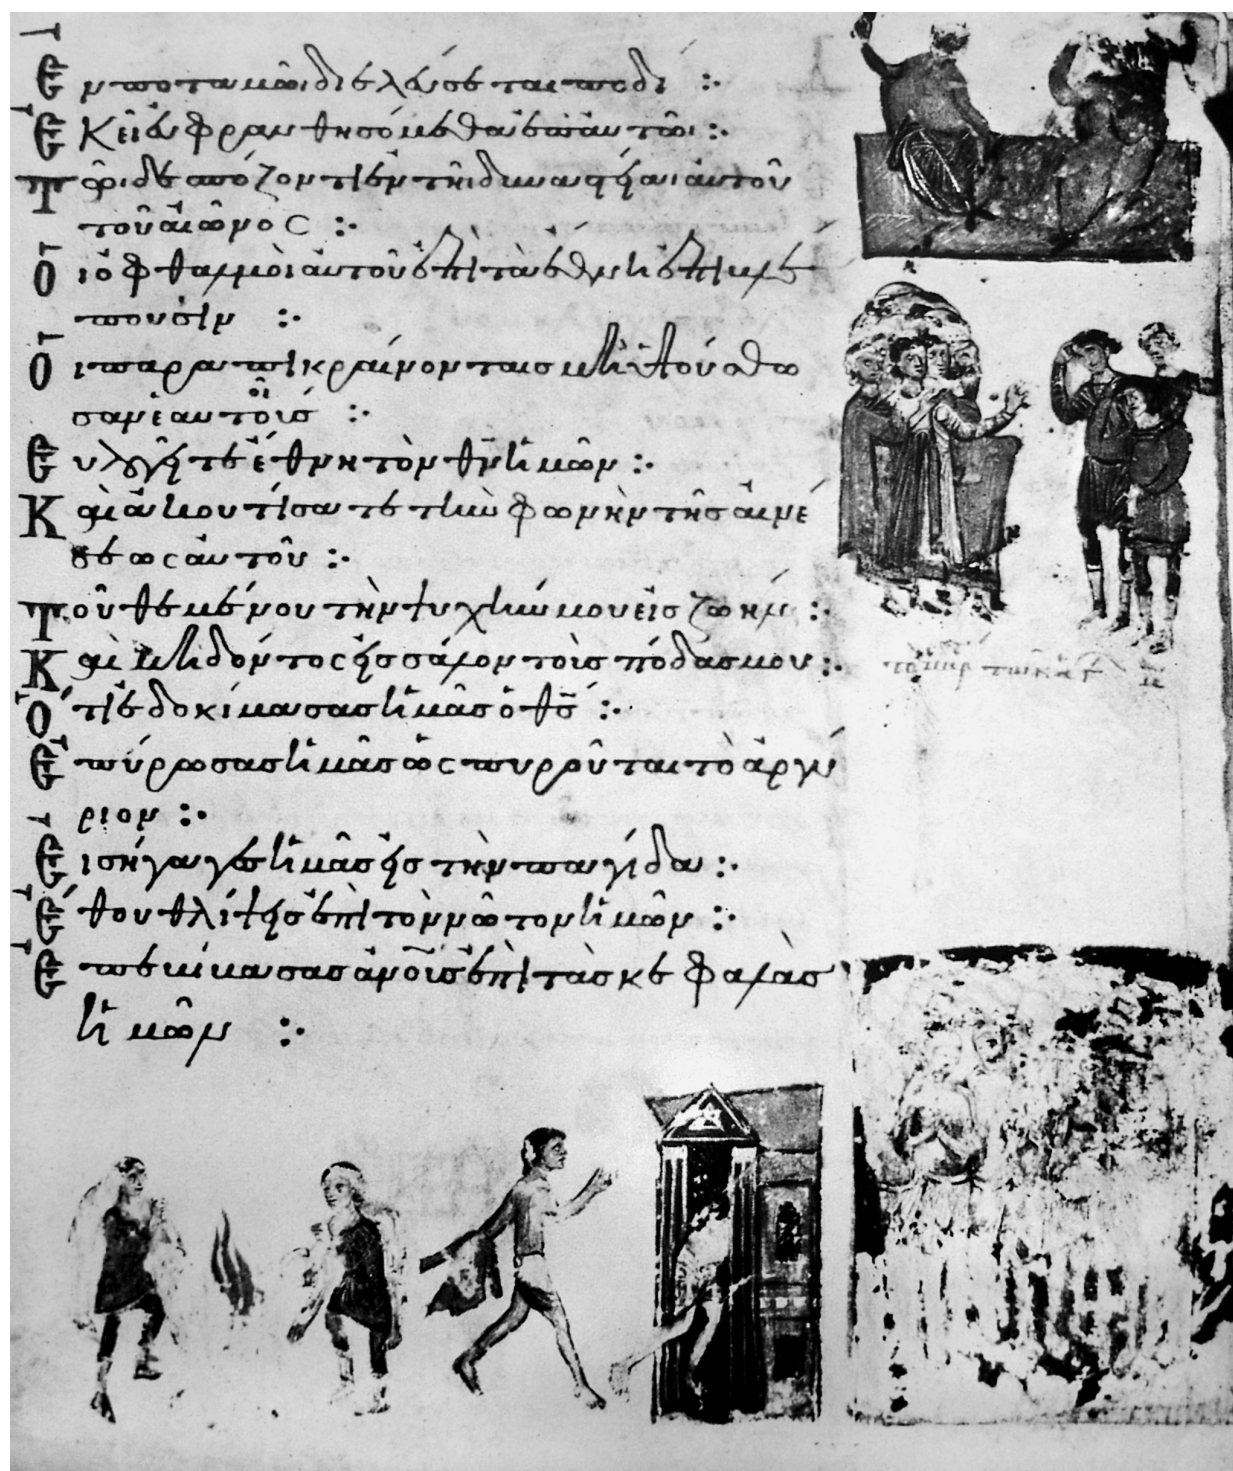 Ἐν ποταμῶι διελεύσεται ποδί :·
Ἐκεῖ εὐφρανθησόμεθα ἐπ' αὐτῶι :·
Τῶι δεσπόζοντι ἐν τῆι δυναστείαι αὐτοῦ
τοῦ αἰῶνος :·
Οἱ ὀφθαλμοὶ αὐτοῦ ἐπὶ τὰ ἔθνη ἐπιβλέ
πουσιν :·
Οἱ παραπικραίνοντες μὴ ὑψούσθω
σαν ἐν ἑαυτοῖς :·
Εὐλογεῖτε ἔθνη τὸν θν ἡμῶν :·
Καὶ ἀκουτίσατε τὴν φωνὴν τῆς αἰνέ
σεως αὐτοῦ :·
Τοῦ θεμένου τὴν ψυχήν μου εἰς ζωήν :·
Καὶ μὴ δόντος εἰς σάλον τοὺς πόδας μου :·
Ὅτι ἐδοκίμασας ἡμᾶς ὁ θς :·
Ἐπύρωσας ἡμᾶς ὡς πυροῦται τὸ ἀργύ
ριον :·
Εἰσήγαγες ἡμᾶς εἰς τὴν παγίδα :·
Ἔθου θλίψεις ἐπὶ τὸν νῶτον ἡμῶν :·
Ἐπεβίβασας ἀνοὺς ἐπὶ τὰς κεφαλὰς
ἡμῶν :·